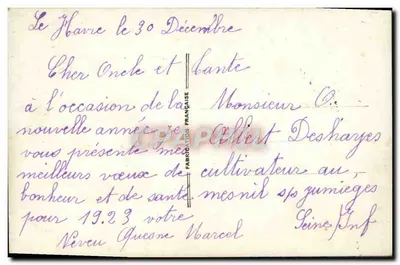 Le Havre le 30 Décembre
Cher Oncle et tante
à l'occasion de la
nouvelle année je
vous présente mes
meilleurs vœux de
bonheur et de santé
pour 1923 votre
Neveu Quesne Marcel
FABRICATION FRANÇAISE
Monsieur
Albert Deshayes
cultivateur au
mesnil s/s jumièges
Seine Inf